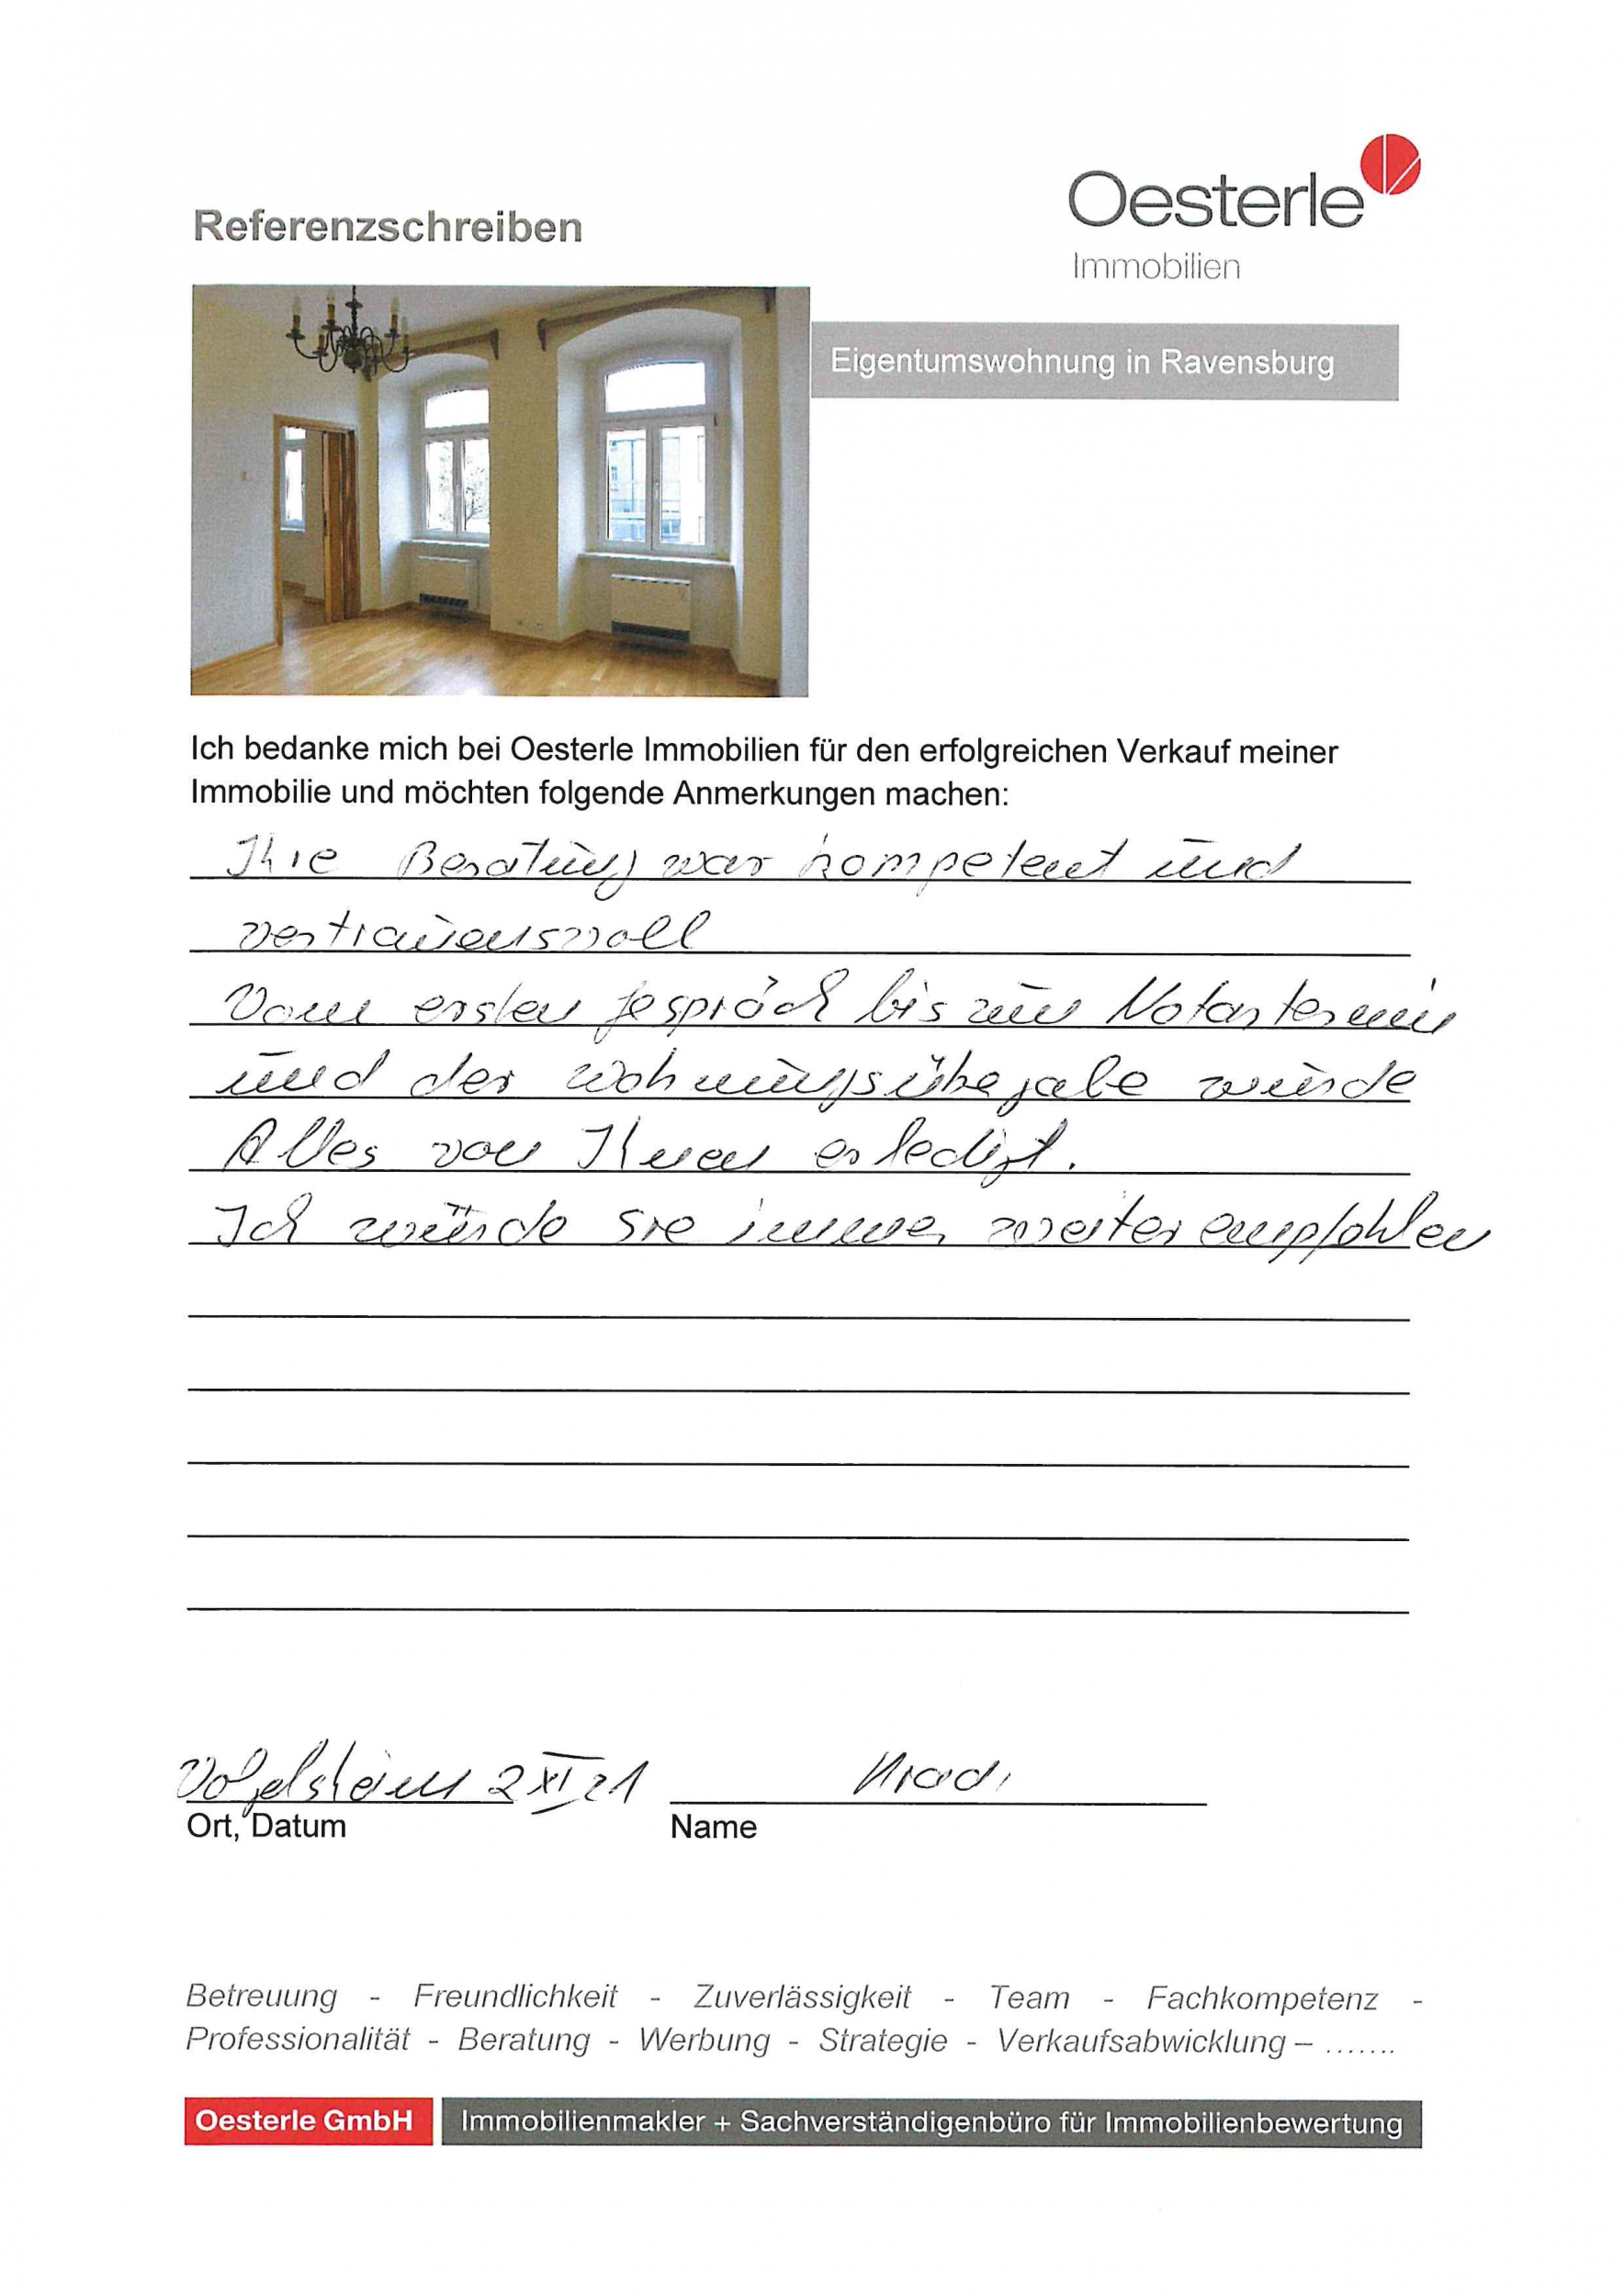 Oesterle
Referenzschreiben
Immobilien
Eigentumswohnung in Ravensburg
Ich bedanke mich bei Oesterle Immobilien für den erfolgreichen Verkauf meiner
Immobilie und möchten folgende Anmerkungen machen:
Ihre Beratung war kompetent und
vertrauensvoll
Vom ersten Gespräch bis zum Notartermin
und der Wohnungsübergabe wurde
Alles von Ihnen erledigt.
Ich würde Sie immer weiter empfohlen
2 XI 21
Ort, Datum
Name
Betreuung - Freundlichkeit - Zuverlässigkeit - Team - Fachkompetenz -
Professionalität - Beratung - Werbung - Strategie - Verkaufsabwicklung – .......
Oesterle GmbH Immobilienmakler + Sachverständigenbüro für Immobilienbewertung